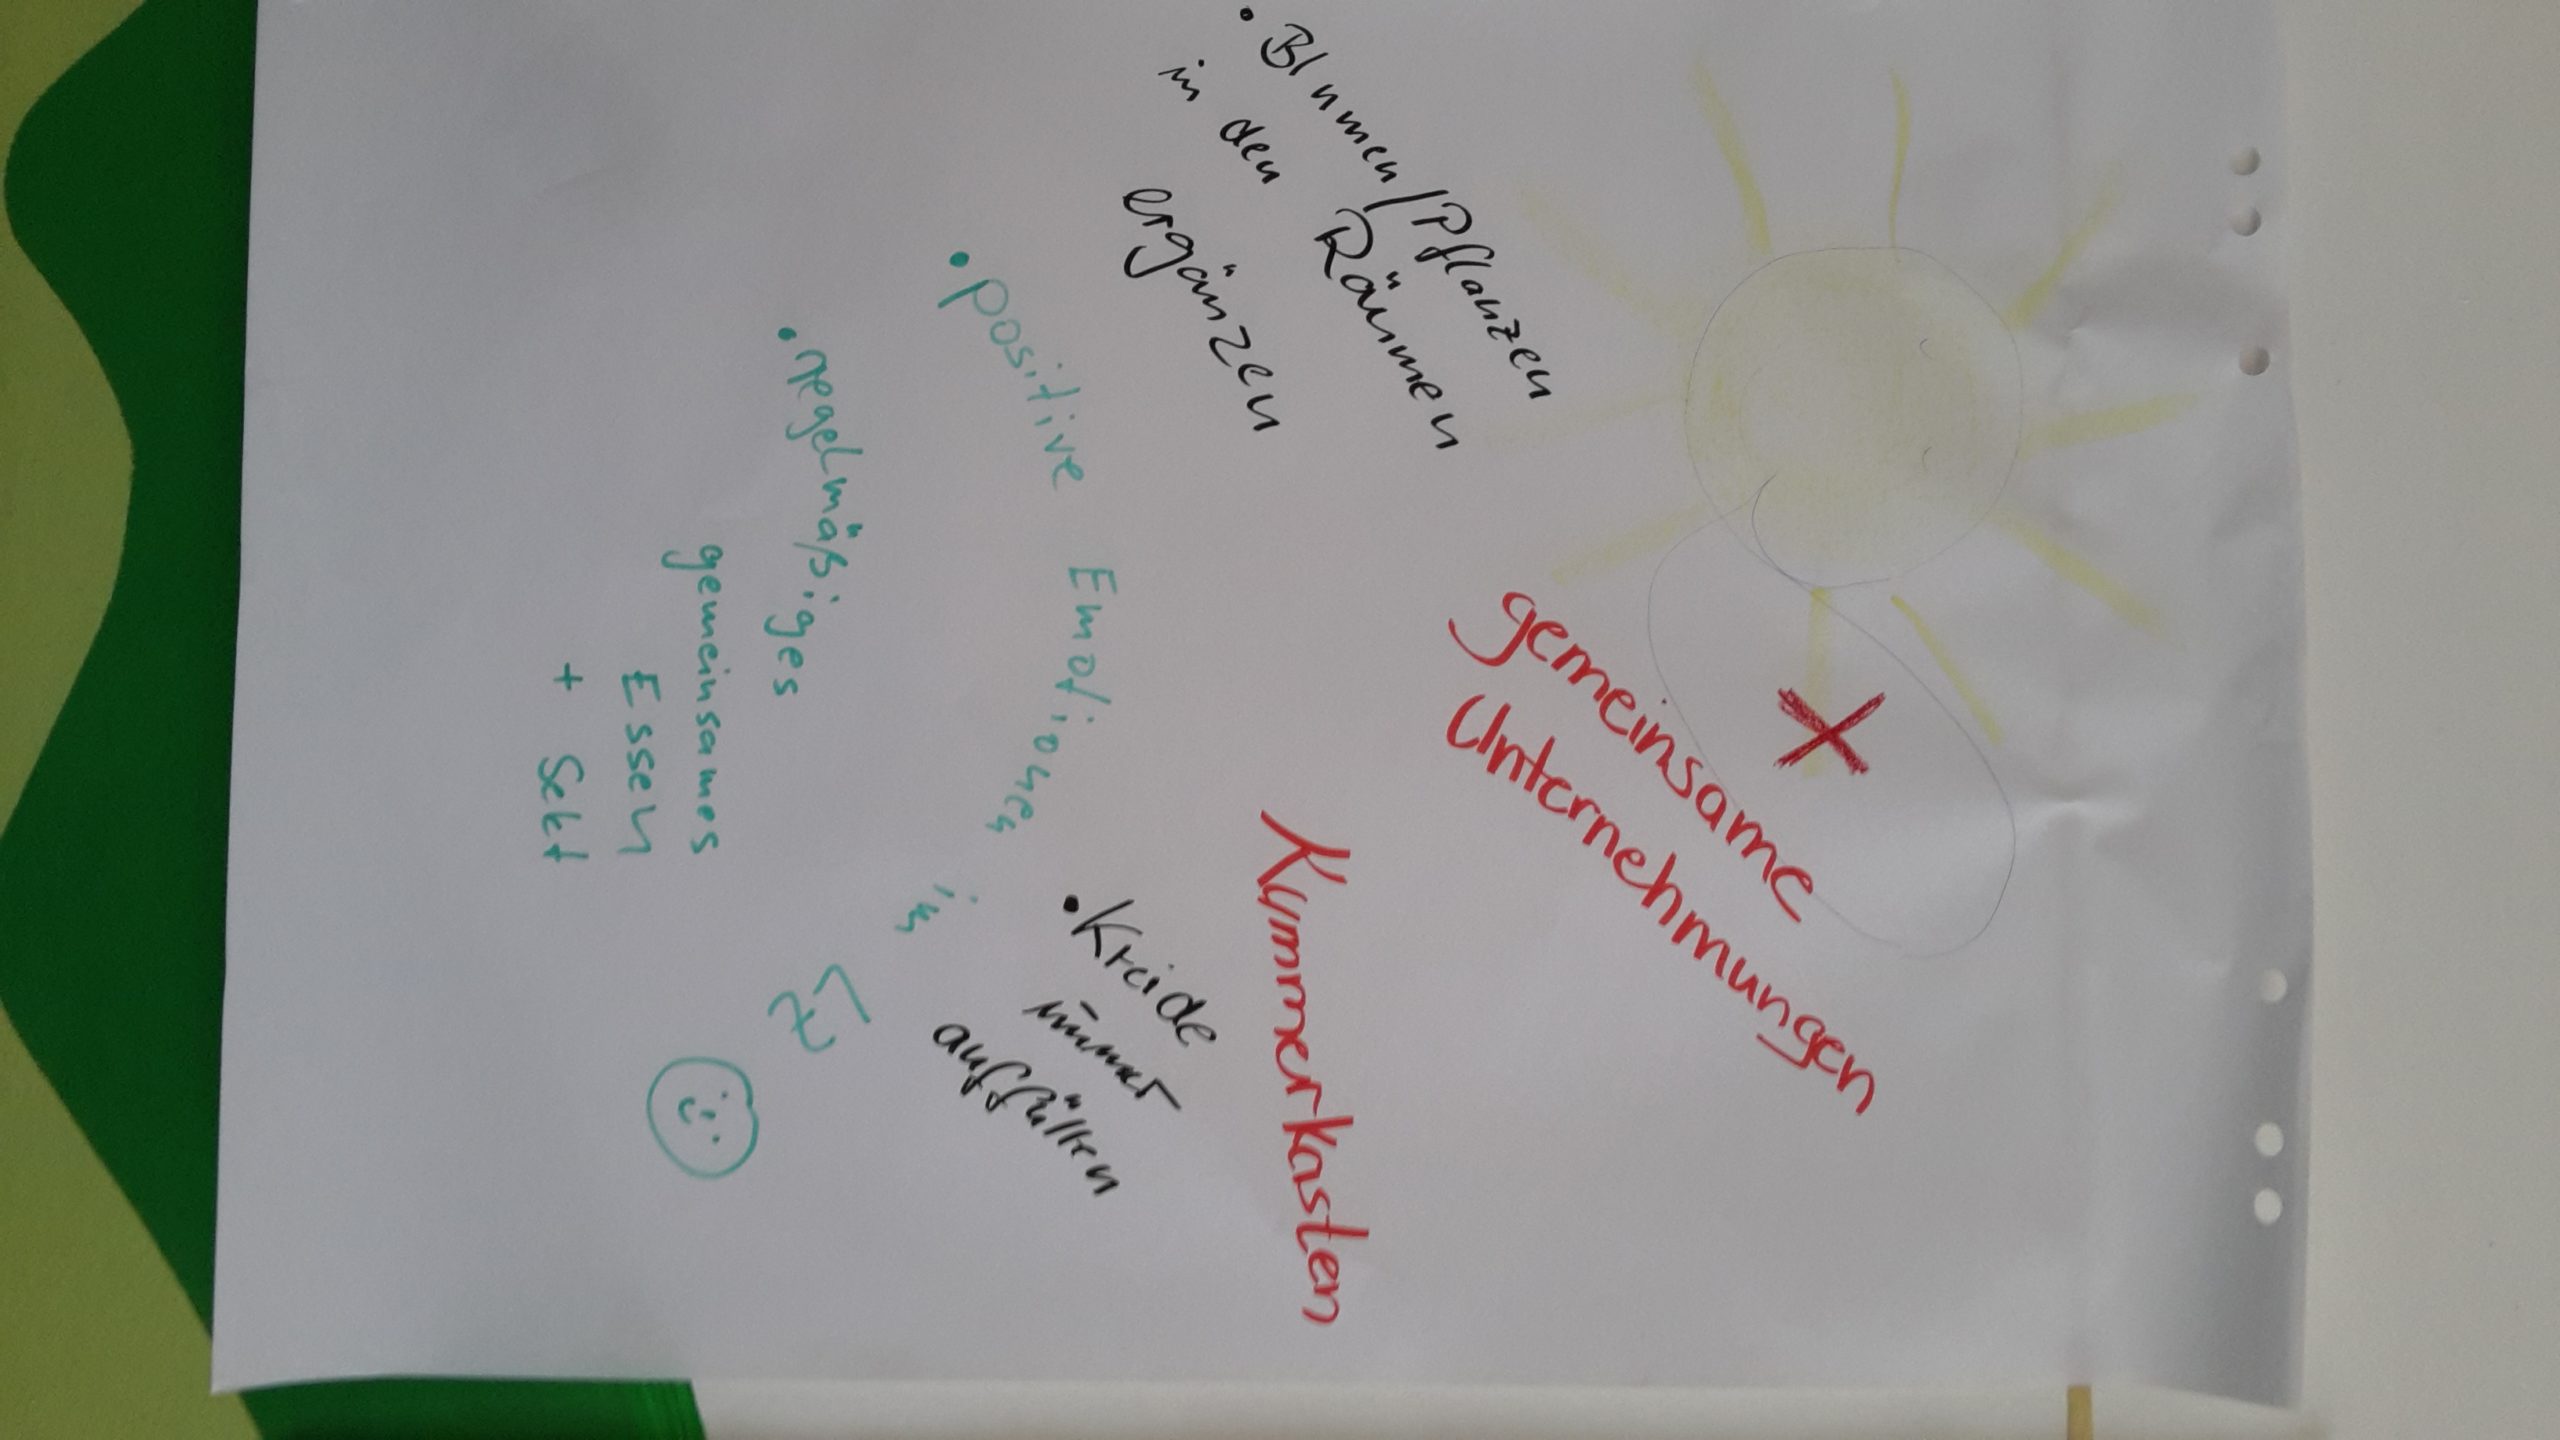 gemeinsame
Unternehmungen
• Blumen/Pflanzen
in den Räumen
ergänzen
Kummerkasten
• positive Emotionen in LZ
• Kreide
immer
auffüllen
• regelmäßiges
gemeinsames
Essen
+ Sekt